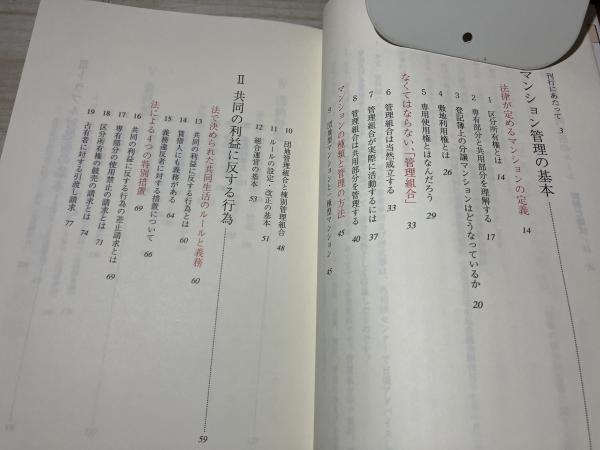 刊行にあたって 3
マンション管理の基本
法律が定めるマンションの定義 14
1 区分所有権とは 14
2 専有部分と共用部分を理解する 17
3 登記簿上の分譲マンションはどうなっているか 20
4 敷地利用権とは 26
5 専用使用権とはなんだろう 29
なくてはならない「管理組合」 33
6 管理組合は当然成立する 33
7 管理組合が実際に活動するには 37
8 管理組合は共用部分を管理する 40
マンションの種類と管理の方法 45
9 団地型マンションと一棟型マンション 45
10 団地管理組合と棟別管理組合 48
11 ルールの設定・改正の基本 51
12 組合運営の基本 53
Ⅱ 共同の利益に反する行為 59
法で決められた共同生活のルールと義務 60
13 共同の利益に反する行為とは 60
14 賃借人にも義務がある 64
15 義務違反者に対する措置について 66
法による4つの特別措置 69
16 共同の利益に反する行為の差止請求とは 69
17 専有部分の使用禁止の請求とは 71
18 区分所有権の競売の請求とは 74
19 占有者に対する引渡し請求 77